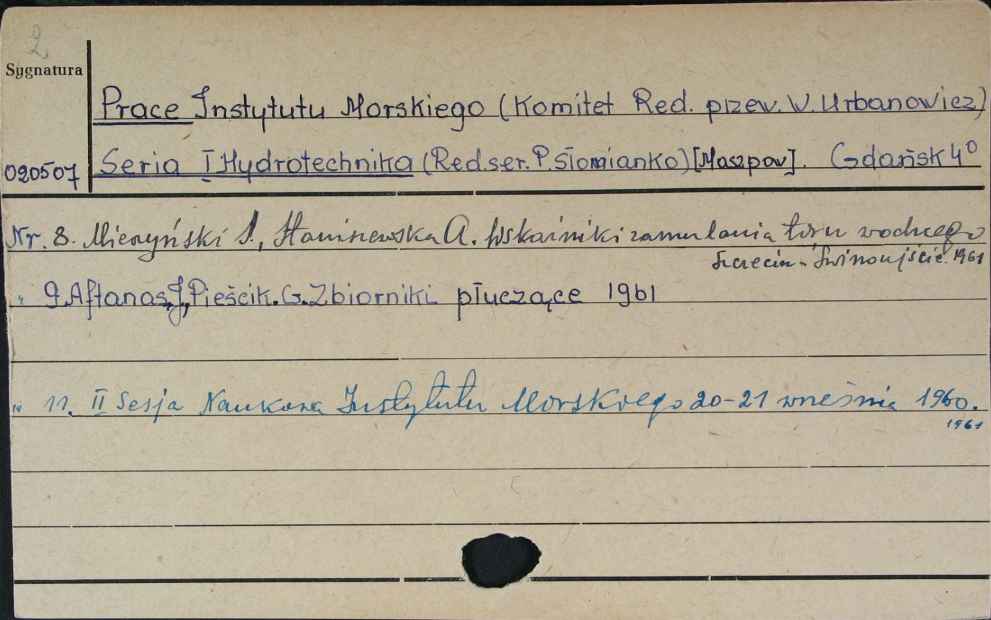 2
Sygnatura
Prace Instytutu Morskiego (Komitet Red. przew. W. Urbanowicz)
020507 Seria I Hydrotechnika (Red.ser. P. Słomianko) [Maszpow]. Gdańsk 4°
Nr. 8. Mieczyński J., Staniszewska A. Wskaźniki zamulania toru wodnego
Szczecin - Świnoujście. 1961
" 9. Aftanas J., Pieścik. G. Zbiorniki płuczące 1961
" 11. II Sesja Naukowa Instytutu Morskiego 20-21 września 1960.
1961